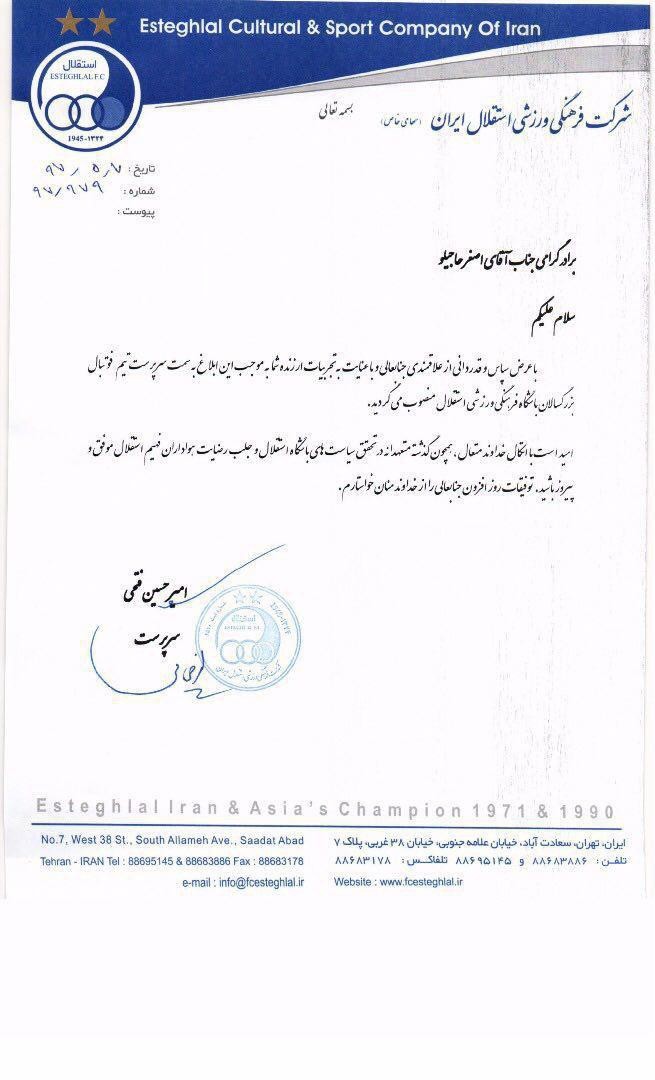 Esteghlal Cultural & Sport Company Of Iran
استقلال
ESTEGHLAL F.C
1945-۱۳۲۴
شرکت فرهنگی ورزشی استقلال ایران (سهامی خاص)
بسمه تعالی
تاریخ : ۹۷/۵/۷
شماره : ۹۷/۹۷۹
پیوست :
برادر گرامی جناب آقای اصغر حاجیلو
سلام علیکم
با عرض سپاس و قدردانی از علاقمندی جنابعالی و با عنایت به تجربیات ارزنده شما به موجب این ابلاغ به سمت سرپرست تیم فوتبال
بزرگسالان باشگاه فرهنگی ورزشی استقلال منصوب می گردید.
امید است با اتکال خداوند متعال، همچون گذشته متعهدانه در تحقق سیاست های باشگاه استقلال و جلب رضایت هواداران فهیم استقلال موفق و
پیروز باشید. توفیقات روز افزون جنابعالی را از خداوند منان خواستارم.
امیرحسین فتحی
سرپرست
استقلال
ESTEGHLAL F.C
Esteghlal Iran & Asia's Champion 1971 & 1990
No.7, West 38 St., South Allameh Ave., Saadat Abad
Tehran - IRAN Tel : 88695145 & 88683886 Fax : 88683178
e-mail : info@fcesteghlal.ir
ایران، تهران، سعادت آباد، خیابان علامه جنوبی، خیابان ۳۸ غربی، پلاک ۷
تلفن : ۸۸۶۸۳۸۸۶ و ۸۸۶۹۵۱۴۵ تلفاکس : ۸۸۶۸۳۱۷۸
Website : www.fcesteghlal.ir